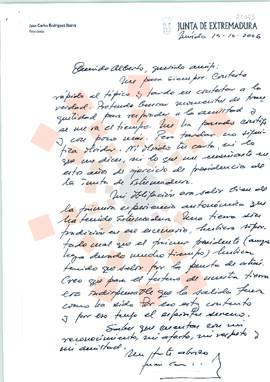 Juan Carlos Rodríguez Ibarra
Presidente
JUNTA DE EXTREMADURA
Mérida 15-10-2006
Querido Alberto, querido amigo:
Me pasa siempre. Contesto
rápido al típico y tardo en contestar a la
verdad. Pretendo buscar momentos de tran
quilidad para responder a la amistad y
se me va el tiempo. Me ha pasado contigo
y con pocos más. Pero tardar no signi
fica olvidar. Ni olvido tu carta, ni lo
que me dices, ni lo que me
estos años de ejercicio de presidencia de
la Junta de Extremadura.
era salir bien de
la primera experiencia autonómica que
ha tenido Extremadura. Una tierra sin
tradición en ese escenario, hubiera sopor
tado mal que el primer presidente (aunque
haya durado mucho tiempo) hubiera
tenido que salir por la puerta de atrás.
Creo que para el futuro de nuestra tierra
era indispensable que la salida fuera
como ha sido. Por eso estoy contento
y por eso tengo el espíritu sereno.
Sabes que cuentas con mi
reconocimiento, mi afecto, mi respeto y
mi amistad.
Un fuerte abrazo
Juan Carlos